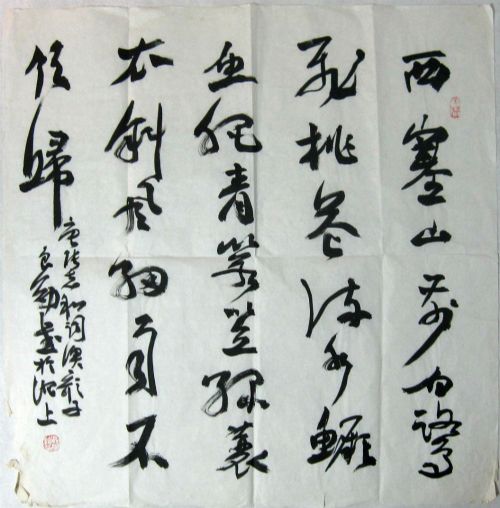 西塞山前白鷺
飛桃花流水鱖
魚肥青箬笠綠蓑
衣斜風細雨不
須歸
唐張志和詞漁歌子
良書於上